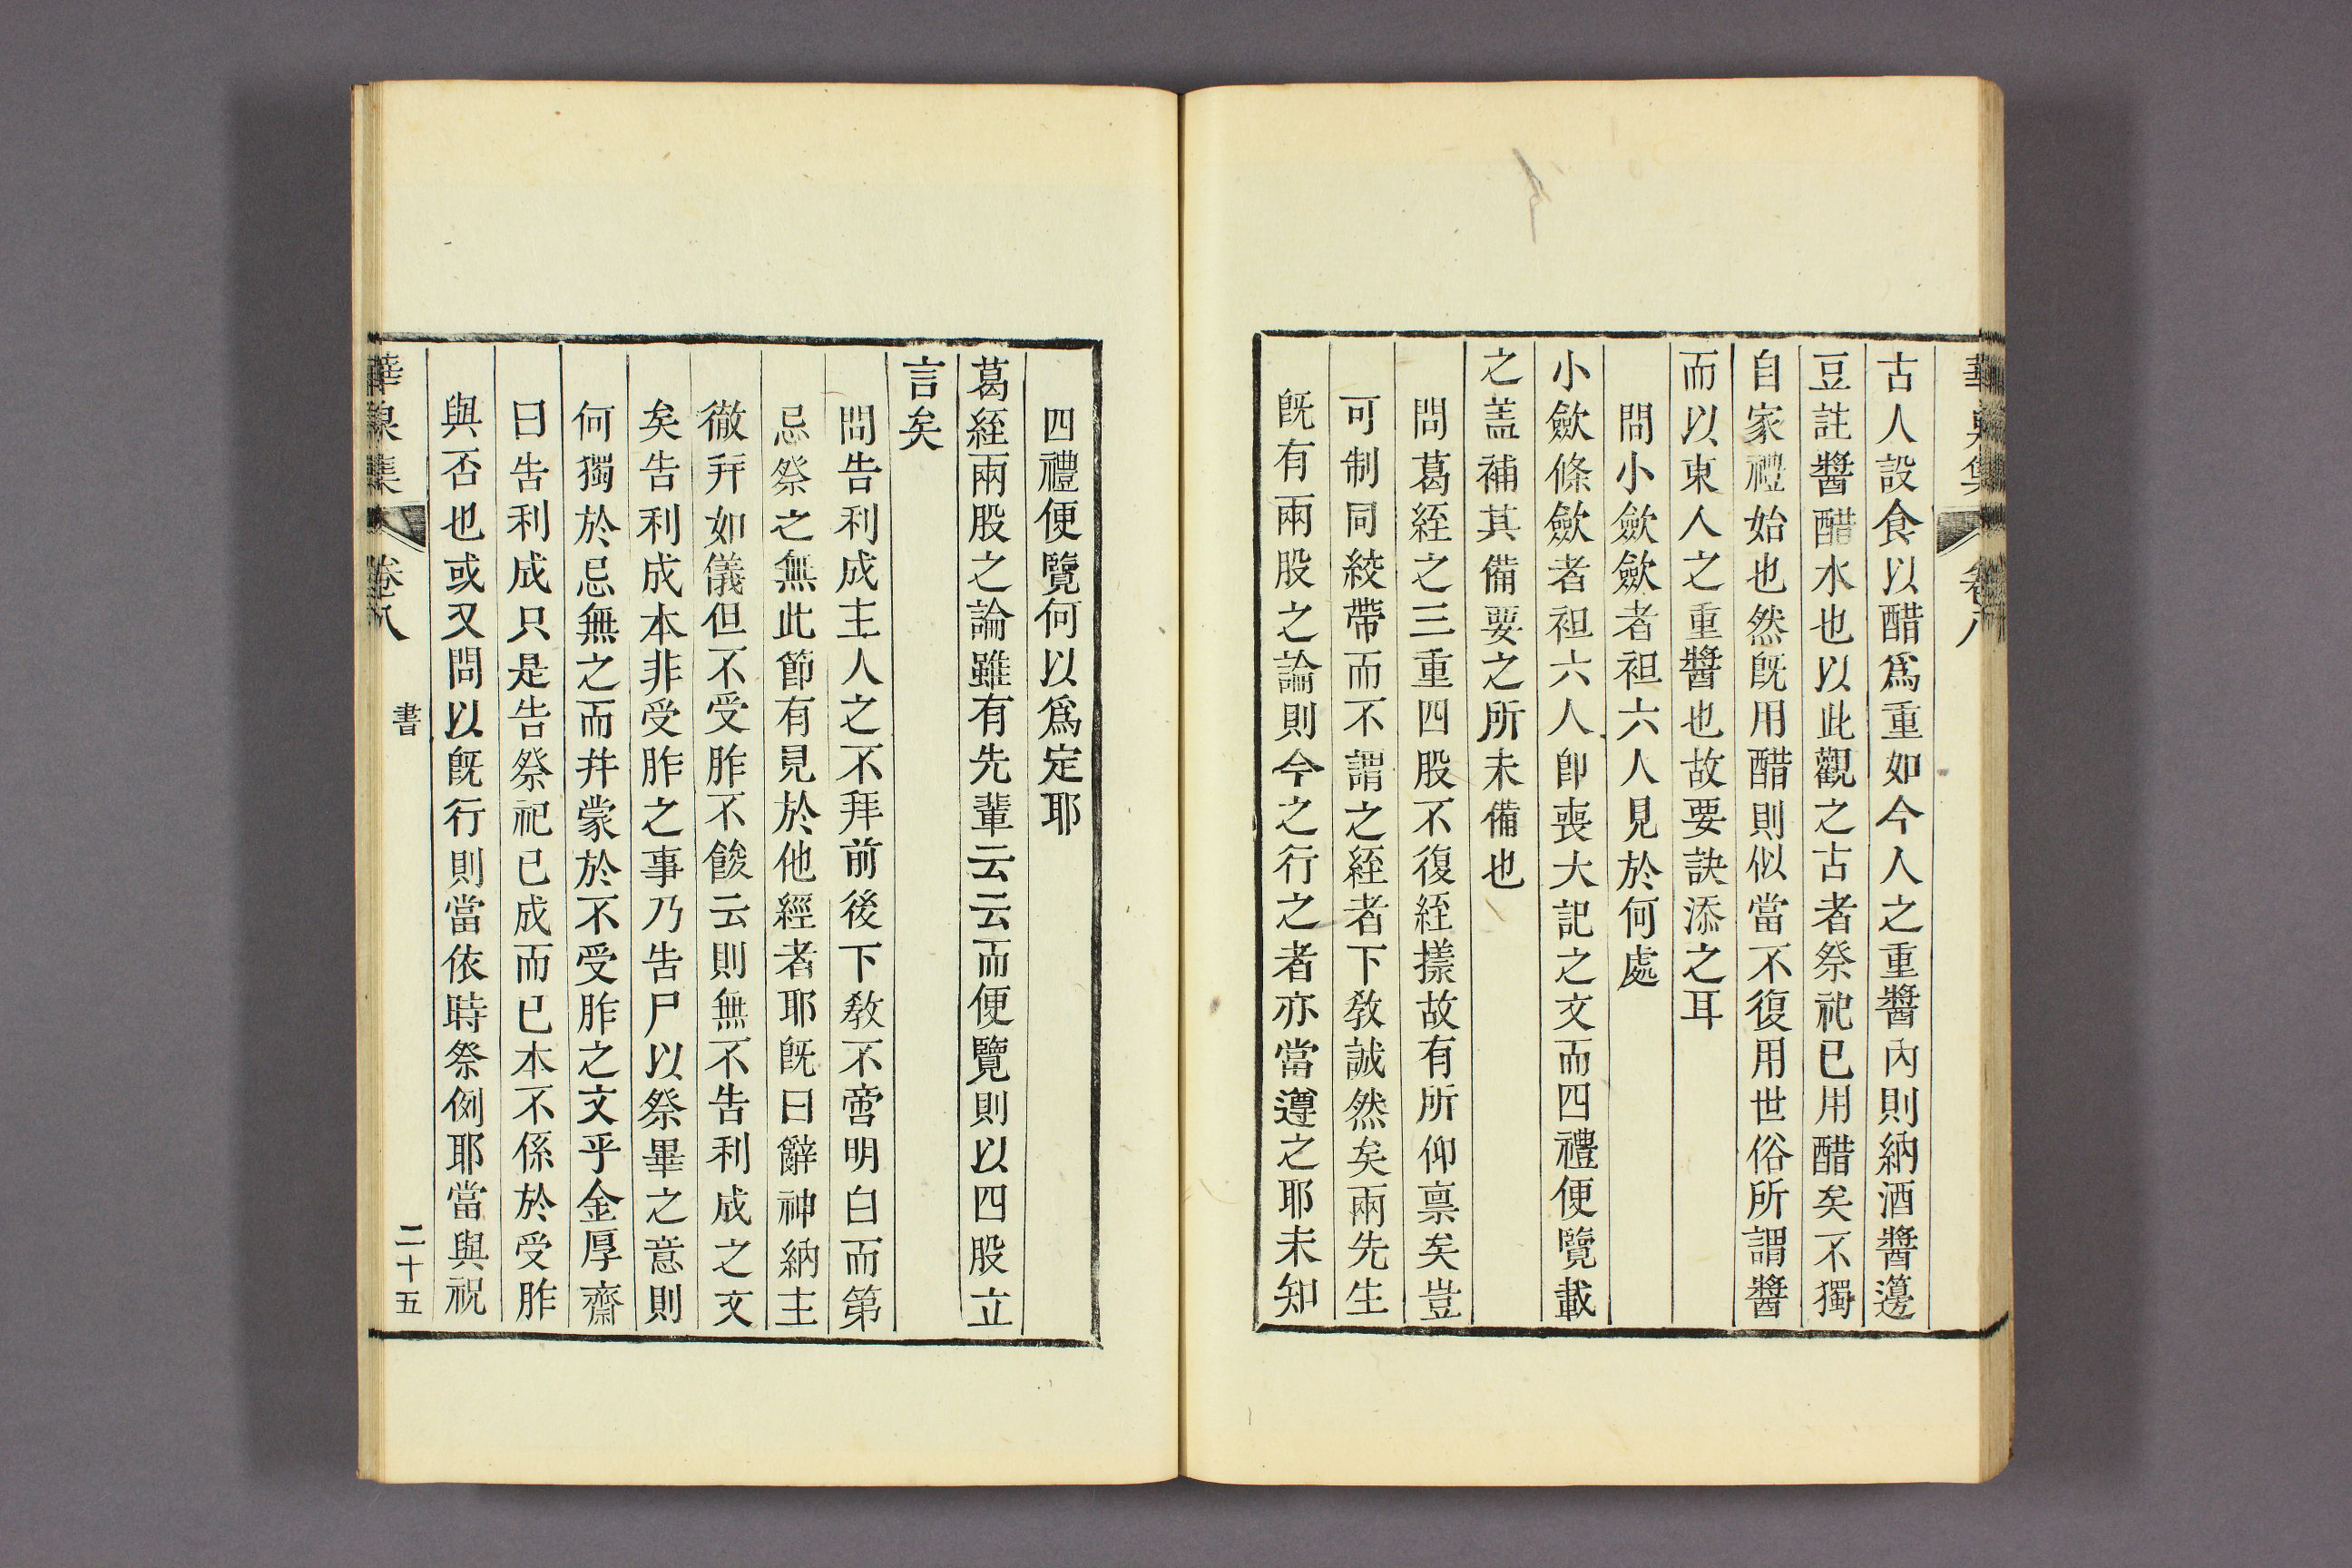 華泉集 卷八
古人設食以醋爲重如今人之重醬內則納酒醬籩
豆註醬醋水也以此觀之古者祭祀已用醋矣不獨
自家禮始也然旣用醋則似當不復用世俗所謂醬
而以東人之重醬也故要訣添之耳
問小歛歛者袒六人見於何處
小歛條歛者袒六人卽喪大記之文而四禮便覽載
之盖補其備要之所未備也
問葛絰之三重四股不復絰㨾故有所仰禀矣豈
可制同絞帶而不謂之絰者下敎誠然矣兩先生
旣有兩股之論則今之行之者亦當遵之耶未知
四禮便覽何以爲定耶
葛絰兩股之論雖有先輩云云而便覽則以四股立
言矣
問告利成主人之不拜前後下敎不啻明白而第
忌祭之無此節有見於他經者耶旣曰辭神納主
徹幷如儀但不受胙不餕云則無不告利成之文
矣告利成本非受胙之事乃告尸以祭畢之意則
何獨於忌無之而幷蒙於不受胙之文乎金厚齋
曰告利成只是告祭祀已成而已本不係於受胙
與否也或又問以旣行則當依時祭例耶當與祝
華泉集 卷八 書 二十五